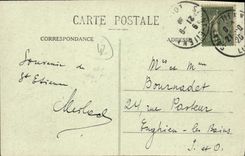 CARTE POSTALE
CORRESPONDANCE
ADRESSE
Souvenir de
St Etienne
Mr et Mme
Bournadet
24 rue Pasteur
Enghien les Bains
S. et O.